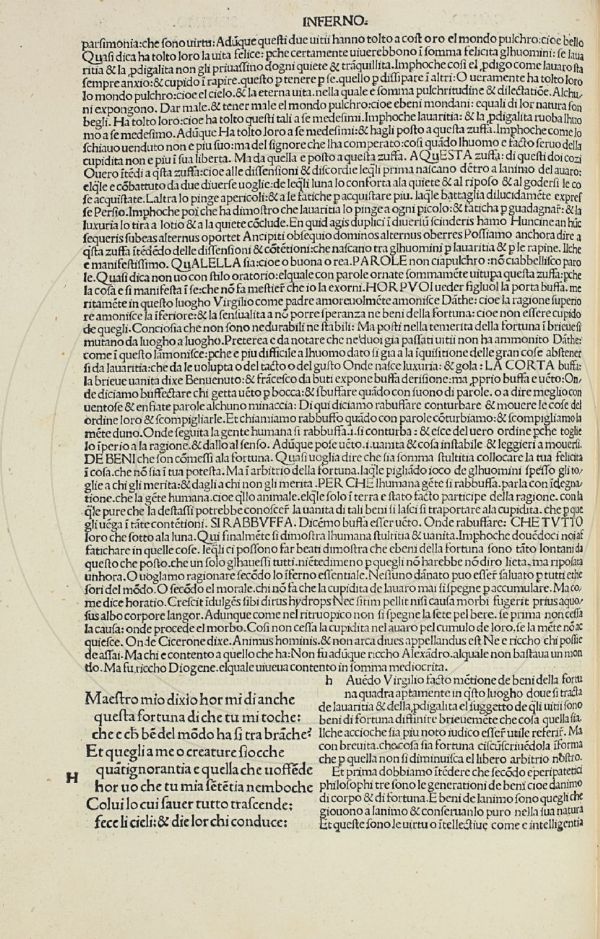 INFERNO.
parsimonia: che sono uirtu: Adũque questi due uitii hanno tolto a cost oro el mondo pulchro: cioe bello
Quasi dica ha tolto loro la uita felice: pche certamente uiuerebbono ĩ somma felicita glhuomini: se laua
ritia & la pdigalita non gli priuassino dogni quiete & trãquillita. Imphoche cosi el pdigo come lauaro sta
sempre anxio: & cupido ĩ rapire. questo p tenere p se. quello p dissipare ĩ altri: O ueramente ha tolto loro
lo mondo pulchro: cioe el cielo. & la eterna uita. nella quale e somma pulchritudine & dilectatiõe. Alchu
ni expongono. Dar male. & tener male el mondo pulchro: cioe ebeni mondani: equali di lor natura son
begli. Ha tolto loro: cioe ha tolto questi tali a se medesimi. Imphoche lauaritia: & la pdigalita ruoba lhuo
mo a se medesimo. Adũque Ha tolto loro a se medesimi: & hagli posto a questa zuffa. Imphoche come lo
schiauo uenduto non e piu suo: ma del signore che lha comperato: cosi quãdo lhuomo e facto seruo della
cupidita non e piu ĩ sua liberta. Ma da quella e posto a questa zuffa. AQVESTA zuffa: di questi doi cozi
Ouero ĩtẽdi a qsta zuffa: cioe alle dissensioni & discordie leqli prima nascano dẽtro a lanimo del auaro:
elqle e cõbattuto da due diuerse uoglie: de leqli luna lo conforta ala quiete & al riposo & al godersi le co
se acquistate. Laltra lo pinge apericoli: & a le fatiche p acquistare piu. laqle battaglia dilucidamẽte expref
se Persio. Imphoche poi che ha dimostro che lauaritia lo pinge a ogni picolo: & faticha p guadagnaf: & la
luxuria lo tira a lotio & a la quiete cõclude. En quid agis duplici ĩ diuersũ scinderis hamo Huncine an hũc
sequeris subeas alternus oportet Ancipiti obsequio dominos alternus oberres Possiamo anchora dire a
qsta zuffa ĩtẽdẽdo delle dissensioni & cõtẽtioni: che nascano tra glhuomini p lauaritia & p le rapine. ilche
e manifestissimo. QVALELLA sia: cioe o buona o rea. PAROLE non ciapulchro: nõ ciabbellisco paro
le. Quasi dica non uo con stilo oratorio: elquale con parole ornate sommamẽte uitupa questa zuffa: pche
la cosa e si manifesta ĩ se: che nõ fa mestieř che io la exorni. HOR PVOI ueder figluol la porta buffa. me
ritamẽte in questo luogho Virgilio come padre amoreuolmẽte amonisce Dãthe: cioe la ragione superio
re amonisce la ĩferiore: & la sensualita a nõ porre speranza ne beni della fortuna: cioe non essere cupido
de quegli. Conciosia che non sono nedurabili ne stabili: Ma posti nella temerita della fortuna ĩ brieue si
mutano da luogho a luogho. Preterea e da notare che ne duoi gia passati uitii non ha ammonito Dãthe:
come ĩ questo lamonisce: pche e piu difficile a lhuomo dato si gia a la ĩquisitione delle gran cose abstener
si da lauaritia: che da le uolupta o del tacto o del gusto Onde nasce luxuria: & gola: LA CORTA buffa:
la brieue uanita dixe Benuenuto: & frãcesco da buti expone buffa derisione: ma pprio buffa e uẽto: On-
de diciamo buffectare chi getta uẽto p bocca: & sbuffare quádo con suono di parole. o a dire meglio con
uentose & enfiate parole alchuno minaccia: Di qui diciamo rabuffare conturbare & mouere le cose del
ordine loro & scompigliarle. Et chiamiamo rabbuffo quãdo con parole cõturbiamo: & scompigliamo la
mẽte duno. Onde seguita la gente humana si rabbuffa. i. si conturba: & esce del uero ordine pche toglie
lo ĩperio a la ragione. & dallo al senso. Adũque pose uẽto. i. uanita & cosa instabile & leggieri a mouersi.
DE BENI che son cõmessi ala fortuna. Quasi uoglia dire che sia somma stultitia collocare la tua felicita
ĩ cosa. che nõ sia ĩ tua potesta. Ma ĩ arbitrio della fortuna. laqle pigliãdo ioco de glhuomini spesso gli to/
glie a chi gli merita: & dagli a chi non gli merita. PER CHE lhumana gẽte si rabbuffa. parla con ĩdegna
tione. che la gẽte humana. cioe qllo animale. elqle solo ĩ terra e stato facto participe della ragione. con la
qle pure che la destassi potrebbe conoscer la uanita di tali beni si lasci si traportare ala cupidita. che p que
gli uẽga ĩ tãte contẽtioni. SI RABBVFFA. Dicẽmo buffa esser uẽto. Onde rabuffare: CHE TVTTO
loro che sotto ala luna. Qui finalmẽte si dimostra lhumana stultitia & uanita. Imphoche douẽdoci noi af
fatichare in quelle cose. leqli ci possono far beati dimostra che ebeni della fortuna sono tãto lontani da
questo che posto. che un solo glhauessi tutti. niẽtedimeno p quegli nõ harebbe nõ diro lieta. ma riposata
unhora. O uogliamo ragionare secõdo lo ĩferno essentiale. Nessuno dánato puo essef saluato p tutti ethe
sori del mõdo. O secõdo el morale. chi nõ fa che la cupidita de lauaro mai si spegne p accumulare. Ma co
me dice horatio. Crescit ĩdulgẽs sibi dirus hydrops Nec sitim pellit nisi causa morbi fugerit prius aquo
sus albo corpore langor. Adunque come nel ritruopico non si spegne la sete pel bere. se prima non cessa
la causa: onde procede el morbo. Cosi non cessa la cupidita nel auaro pel cumulo de loro. se la mẽte nõ ac
quiesce. Onde Cicerone dixe. Animus hominis. & non arca diues appellandus est Ne e riccho chi possie
de assai. Ma chi e contento a quello che ha: Non fu adũque riccho Alexadro. alquale non bastaua un mon
do. Ma fu riccho Diogene. elquale uiueua contento in somma mediocrita.
Maestro mio dixio hor mi di anche
questa fortuna di che tu mi toche:
che e ch bẽ del mõdo ha si tra brãche?
Et quegli a me o creature sioche
quãtignorantia e quella che uoffẽde
hor uo che tu mia sẽtẽtia nemboche
H
Colui lo cui sauer tutto trascende:
fece li cieli: & die lor chi conduce:
h Auẽdo Virgilio facto mẽtione de beni della fortu
na quadra aptamente in qsto luogho doue si tracta
de lauaritia & della pdigalita el suggetto de qli uitii sono
beni di fortuna diffinire brieuemẽte che cosa quella sia.
Ilche accioche sia piu noto iudico essef utile referif. Ma
con breuita. che cosa sia fortuna circũscriuẽdola ĩ forma
che p quella non si diminuisca el libero arbitrio nostro.
Et prima dobbiamo ĩtẽdere che secõdo e peripatetici
philosophi tre sono le generationi de beni cioe danimo
di corpo & di fortuna. E beni de lanimo sono quegli che
giouono a lanimo & conseruanlo puro nella sua natura
Et queste sono le uirtu o ĩtellectiue come e intelligentia